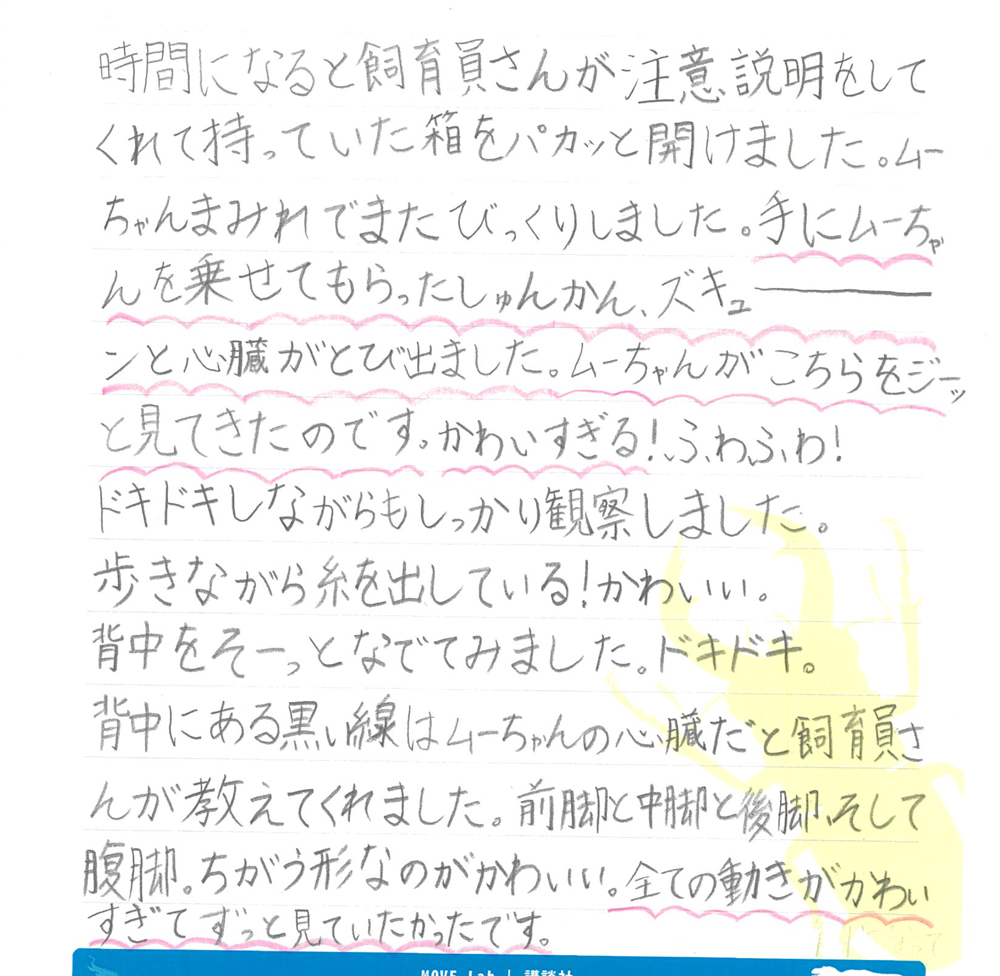 時間になると飼育員さんが注意説明をして
くれて持っていた箱をパカッと開けました。ムー
ちゃんまみれでまたびっくりしました。手にムーちゃ
んを乗せてもらったしゅんかん、ズキュ―――
ンと心臓がとび出ました。ムーちゃんがこちらをジーッ
と見てきたのです。かわいすぎる!ふわふわ!
ドキドキしながらもしっかり観察しました。
歩きながら糸を出している!かわいい。
背中をそーっとなでてみました。ドキドキ。
背中にある黒い線はムーちゃんの心臓だと飼育員さ
んが教えてくれました。前脚と中脚と後脚、そして
腹脚。ちがう形なのがかわいい。全ての動きがかわい
すぎてずっと見ていたかったです。
MOVE Lab | 講談社